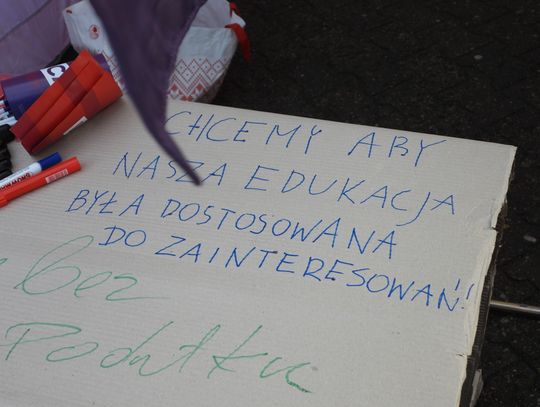 CHCEMY ABY
NASZA EDUKACJA
BYŁA DOSTOSOWANA
DO ZAINTERESOWAŃ!
bez
Podatku